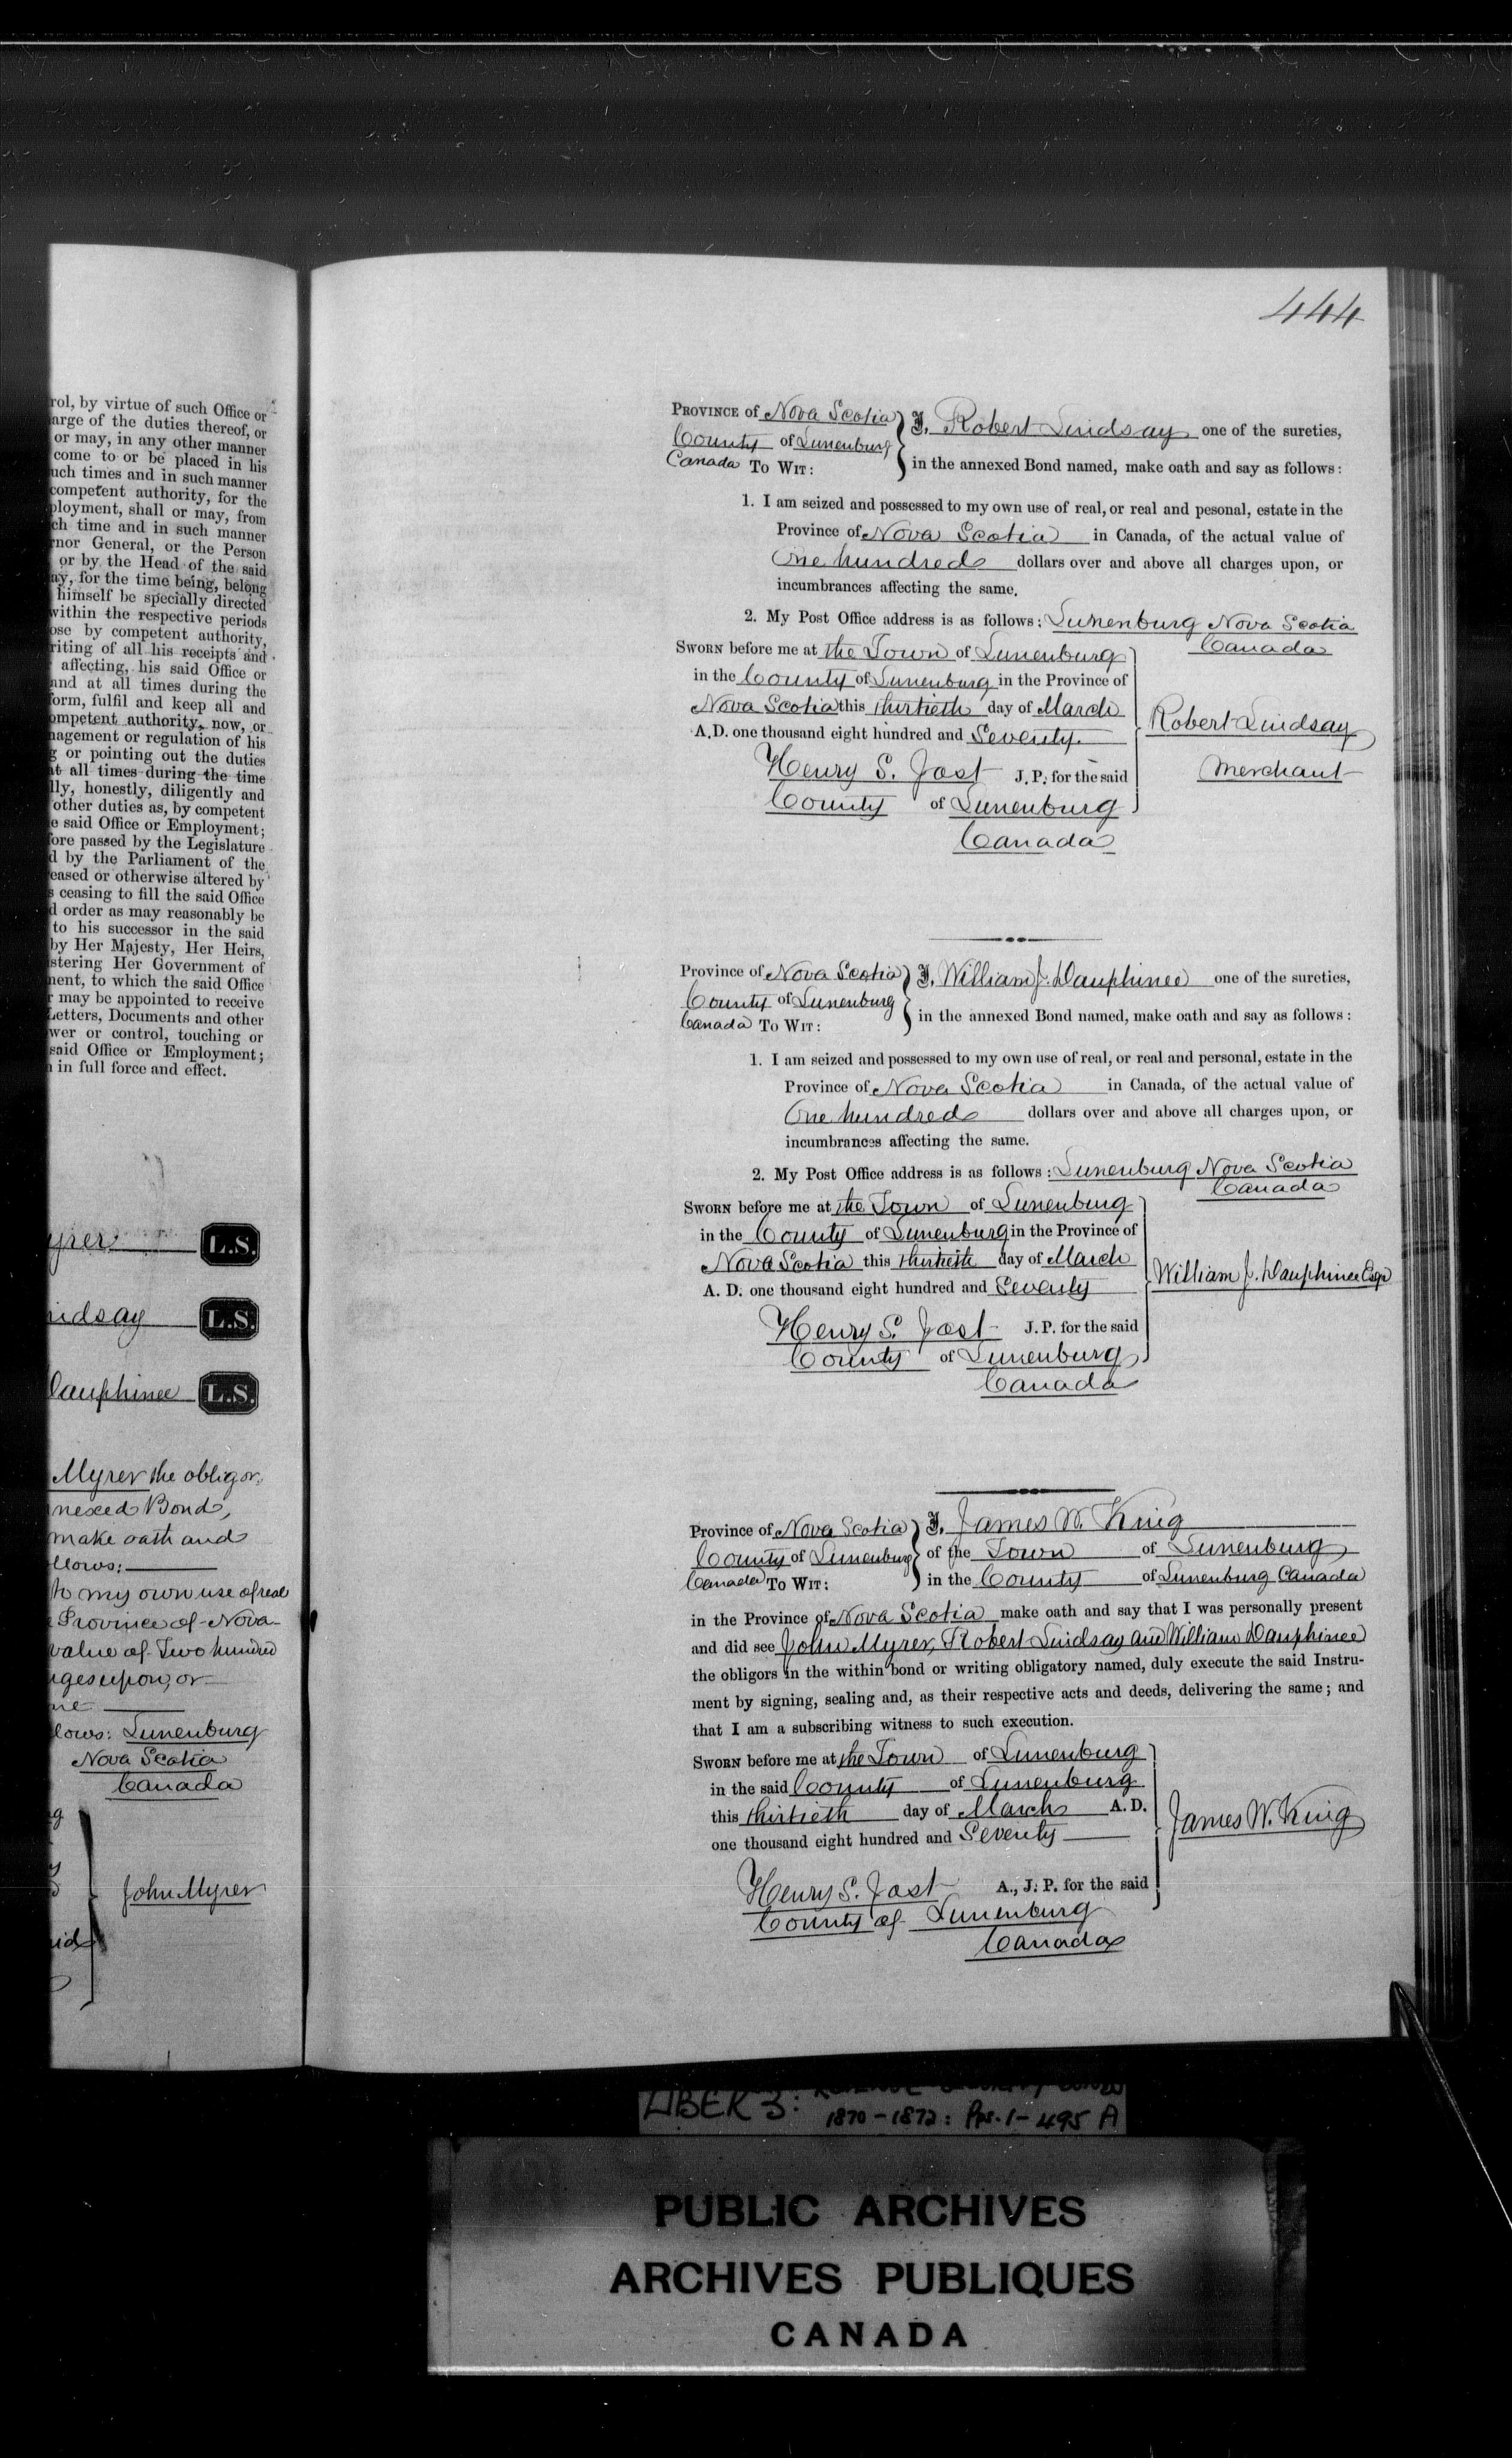 rol, by virtue of such Office or
arge of the duties thereof, or
or may, in any other manner
come to or be placed in his
uch times and in such manner
competent authority, for the
ployment, shall or may, from
ch time and in such manner
rnor General, or the Person
or by the Head of the said
ay, for the time being, belong
himself be specially directed
within the respective periods
ose by competent authority,
riting of all his receipts and
affecting, his said Office or
and at all times during the
form, fulfil and keep all and
ompetent authority, now, or
nagement or regulation of his
g or pointing out the duties
at all times during the time
lly, honestly, diligently and
other duties as, by competent
e said Office or Employment;
fore passed by the Legislature
d by the Parliament of the
eased or otherwise altered by
s ceasing to fill the said Office
d order as may reasonably be
to his successor in the said
by Her Majesty, Her Heirs,
stering Her Government of
ment, to which the said Office
r may be appointed to receive
Letters, Documents and other
wer or control, touching or
said Office or Employment;
n in full force and effect.
yrer L.S.
indsay L.S.
Dauphinee L.S.
Myrer the obligor,
nexed Bond,
make oath and
llows:
to my own use of real
Province of Nova
value of Two hundred
rges upon, or
me
llows: Lunenburg
Nova Scotia
Canada
John Myrer
444
PROVINCE of Nova Scotia } I, Robert Lindsay one of the sureties,
County of Lunenburg
Canada TO WIT: } in the annexed Bond named, make oath and say as follows:
1. I am seized and possessed to my own use of real, or real and pesonal, estate in the
Province of Nova Scotia in Canada, of the actual value of
One hundred dollars over and above all charges upon, or
incumbrances affecting the same.
2. My Post Office address is as follows: Lunenburg Nova Scotia
Canada
SWORN before me at the Town of Lunenburg
in the County of Lunenburg in the Province of
Nova Scotia this thirtieth day of March
A.D. one thousand eight hundred and Seventy.
Robert Lindsay
Merchant
Henry S. Jost J. P. for the said
County of Lunenburg
Canada
Province of Nova Scotia } I, William J. Dauphinee one of the sureties,
County of Lunenburg
Canada TO WIT: } in the annexed Bond named, make oath and say as follows:
1. I am seized and possessed to my own use of real, or real and personal, estate in the
Province of Nova Scotia in Canada, of the actual value of
One hundred dollars over and above all charges upon, or
incumbrances affecting the same.
2. My Post Office address is as follows: Lunenburg Nova Scotia
Canada
SWORN before me at the Town of Lunenburg
in the County of Lunenburg in the Province of
Nova Scotia this thirtieth day of March
A. D. one thousand eight hundred and Seventy
William J. Dauphinee Esqr
Henry S. Jost J. P. for the said
County of Lunenburg
Canada
Province of Nova Scotia } I, James W. King
County of Lunenburg of the Town of Lunenburg
Canada TO WIT: } in the County of Lunenburg Canada
in the Province of Nova Scotia make oath and say that I was personally present
and did see John Myrer, Robert Lindsay and William Dauphinee
the obligors in the within bond or writing obligatory named, duly execute the said Instru-
ment by signing, sealing and, as their respective acts and deeds, delivering the same; and
that I am a subscribing witness to such execution.
SWORN before me at the Town of Lunenburg
in the said County of Lunenburg
this thirtieth day of March A. D.
one thousand eight hundred and Seventy
James W. King
Henry S. Jost A., J. P. for the said
County of Lunenburg
Canada
LIBER 3:
1870-1872: Pps. 1-495 A
PUBLIC ARCHIVES
ARCHIVES PUBLIQUES
CANADA